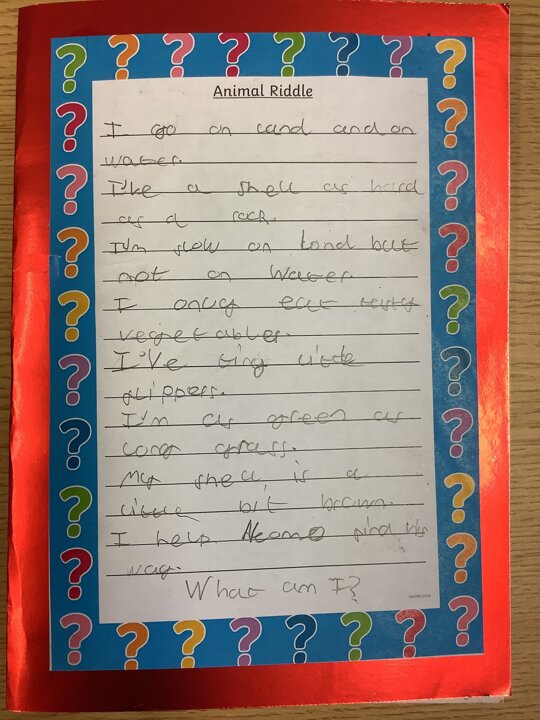 Animal Riddle
I go on land and on
water.
I've a shell as hard
as a rock.
I'm slow on land but
not on water.
I only eat tasty
vegetables.
I've tiny little
flippers.
I'm as green as
long grass.
My shell is a
little bit brown.
I help Nemo find his
way.
What am I?
twinkl.com